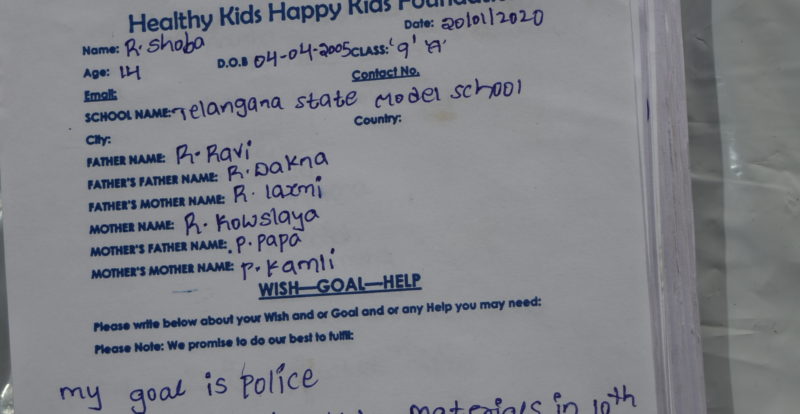 Healthy Kids Happy Kids
Date: 20/01/2020
Name: R. Shoba
D.O.B 04-04-2005 CLASS: '9' 'A'
Age: 14
Contact No.
Email:
SCHOOL NAME: Telangana state Model school
City:
Country:
FATHER NAME: R. Ravi
FATHER'S FATHER NAME: R. Dakna
FATHER'S MOTHER NAME: R. laxmi
MOTHER NAME: R. Kowslaya
MOTHER'S FATHER NAME: P. Papa
MOTHER'S MOTHER NAME: P. Kamli
WISH—GOAL—HELP
Please write below about your Wish and or Goal and or any Help you may need:
Please Note: We promise to do our best to fulfil:
my goal is police
materials in 10th